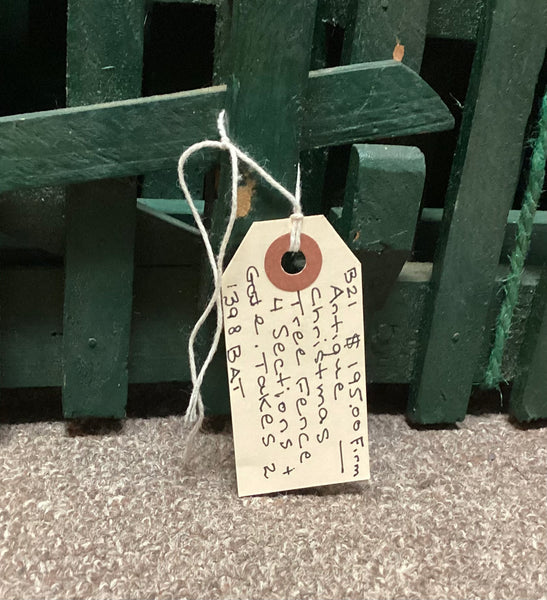 B21 $195.00 Firm
Antique
Christmas
Tree Fence
4 Sections +
Gate. Takes 2
1398 BAT